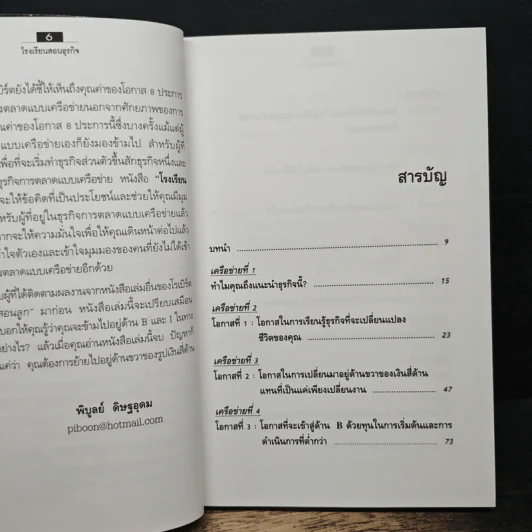 6
โรงเรียนสอนธุรกิจ
ยังได้ชี้ให้เห็นถึงคุณค่าของโอกาส 8 ประการ
ตลาดแบบเครือข่ายนอกจากศักยภาพของการ
ค่าของโอกาส 8 ประการนี้ซึ่งบางครั้งแม้แต่ผู้
เครือข่ายเองก็ยังมองข้ามไป สำหรับผู้ที่
เพื่อที่จะเริ่มทำธุรกิจส่วนตัวขึ้นสักธุรกิจหนึ่งและ
ธุรกิจการตลาดแบบเครือข่าย หนังสือ "โรงเรียน
จะให้ข้อคิดที่เป็นประโยชน์และช่วยให้คุณมีมุม
หรับผู้ที่อยู่ในธุรกิจการตลาดแบบเครือข่ายแล้ว
จากจะให้ความมั่นใจเพื่อให้คุณเดินหน้าต่อไปแล้ว
ใจตัวเองและเข้าใจมุมมองของคนที่ยังไม่ได้เข้า
ตลาดแบบเครือข่ายอีกด้วย
ผู้ที่ได้ติดตามผลงานจากหนังสือเล่มอื่นของโรเบิร์ต
สอนลูก" มาก่อน หนังสือเล่มนี้จะเปรียบเสมือน
บอกให้คุณรู้ว่าคุณจะข้ามไปอยู่ด้าน B และ I ในทาง
อย่างไร? แล้วเมื่อคุณอ่านหนังสือเล่มนี้จบ ปัญหาก็
แค่ว่า คุณต้องการย้ายไปอยู่ด้านขวาของรูปเงินสี่ด้าน
พิบูลย์ ดิษฐอุดม
piboon@hotmail.com
สารบัญ
บทนำ 9
เครือข่ายที่ 1
ทำไมคุณถึงแนะนำธุรกิจนี้? 15
เครือข่ายที่ 2
โอกาสที่ 1 : โอกาสในการเรียนรู้ธุรกิจที่จะเปลี่ยนแปลง
ชีวิตของคุณ 23
เครือข่ายที่ 3
โอกาสที่ 2 : โอกาสในการเปลี่ยนมาอยู่ด้านขวาของเงินสี่ด้าน
แทนที่เป็นแค่เพียงเปลี่ยนงาน 47
เครือข่ายที่ 4
โอกาสที่ 3 : โอกาสที่จะเข้าสู่ด้าน B ด้วยทุนในการเริ่มต้นและการ
ดำเนินการที่ต่ำกว่า 73